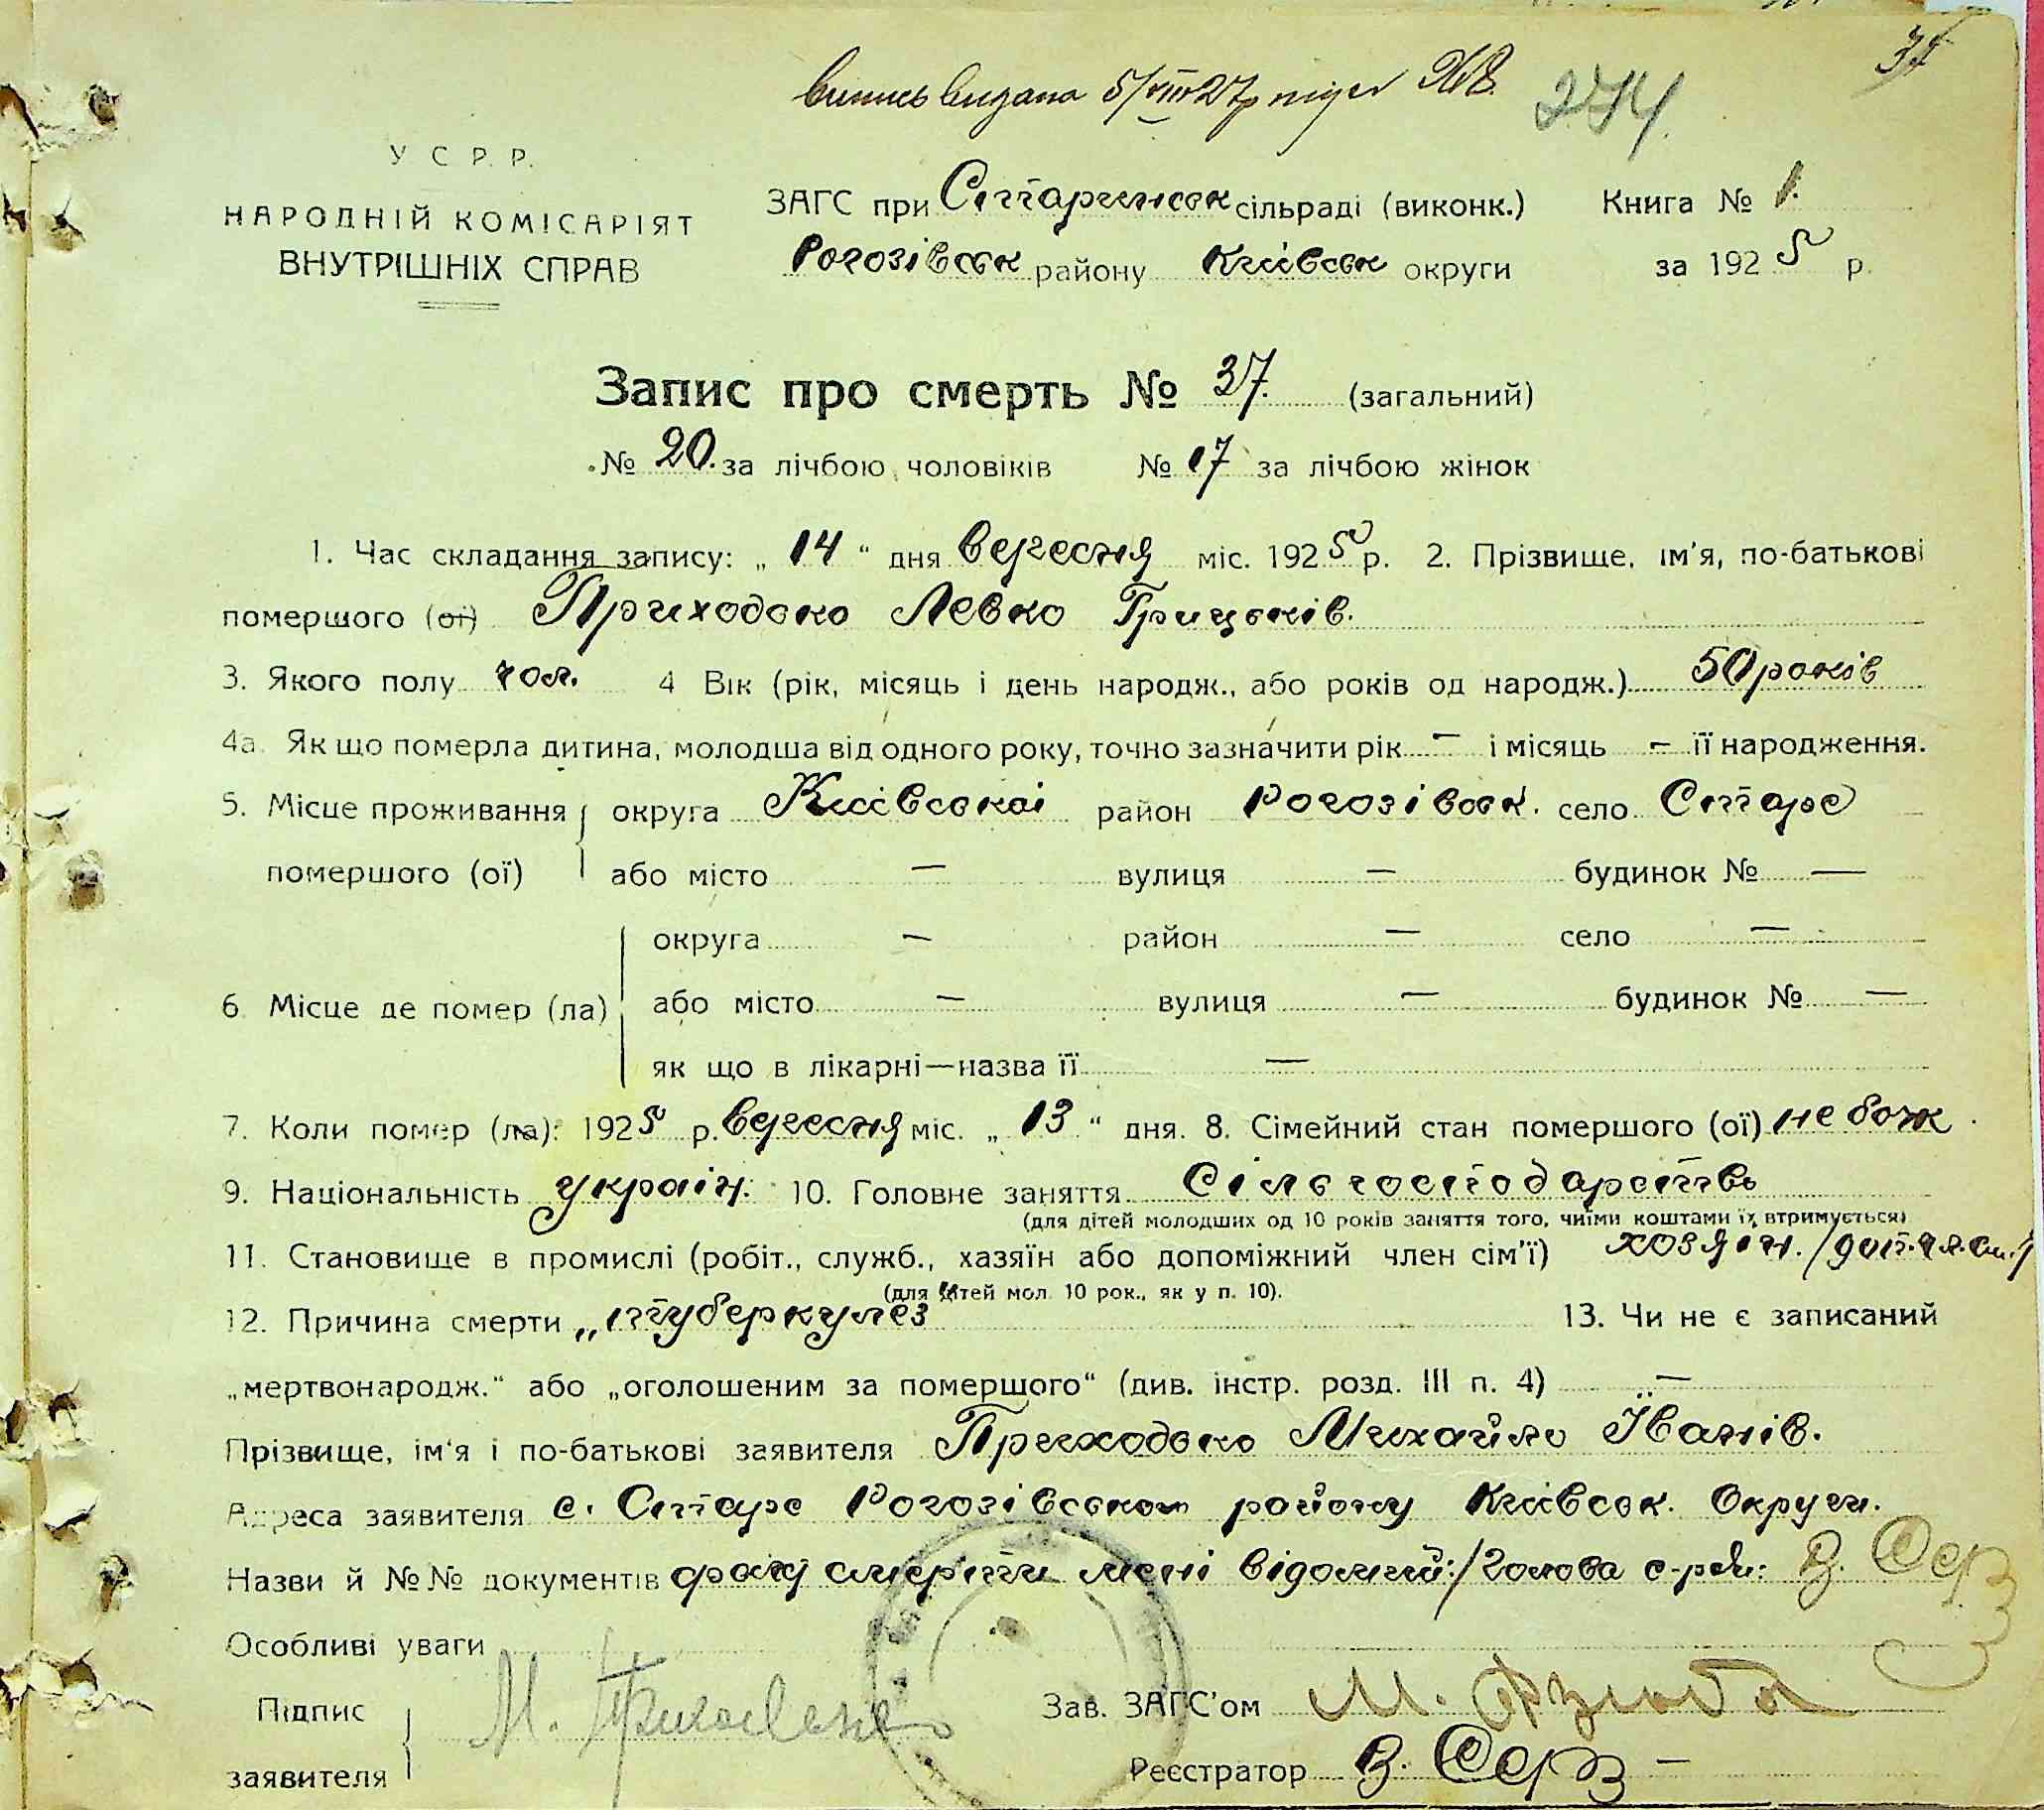 37
випись видана 5/VIII 27р під № 8. 274.
У С Р. Р.
НАРОДНІЙ КОМІСАРІЯТ
ВНУТРІШНІХ СПРАВ
ЗАГС при Старинськ сільраді (виконк.)
Рогозівськ району Київськ округи
Книга № 1.
за 1925 р.
Запис про смерть № 37. (загальний)
№ 20. за лічбою чоловіків № 17 за лічбою жінок
1. Час складання запису: „ 14 “ дня вересня міс. 1925 р. 2. Прізвище, ім'я, по-батькові
помершого (ої) Приходько Левко Грицьків.
3. Якого полу чол. 4 Вік (рік, місяць і день народж., або років од народж.) 50 років
4а. Як що померла дитина, молодша від одного року, точно зазначити рік — і місяць — її народження.
5. Місце проживання округа Київської район Рогозівськ. село Старе
помершого (ої) або місто — вулиця — будинок № —
округа — район — село —
6 Місце де помер (ла) або місто — вулиця — будинок № —
як що в лікарні—назва її —
7. Коли помер (ла): 1925 р. вересня міс. „ 13 “ дня. 8. Сімейний стан помершого (ої)
9. Національність україн. 10. Головне заняття Сільгосподарство
(для дітей молодших од 10 років заняття того, чиїми коштами їх втримується)
11. Становище в промислі (робіт., служб., хазяїн або допоміжний член сім'ї) хозяін.
(для дітей мол. 10 рок., як у п. 10).
12. Причина смерти „туберкулез 13. Чи не є записаний
„мертвонародж.“ або „оголошеним за помершого“ (див. інстр. розд. III п. 4) —
Прізвище, ім'я і по-батькові заявителя Приходько Михайло Їванів.
Адреса заявителя с. Старе Рогозівського району Київськ. Округи.
Назви й №№ документів факт смерти мені відомий:/Голова с-ради:
Особливі уваги
Підпис
заявителя
Зав. ЗАГС'ом
Реєстратор